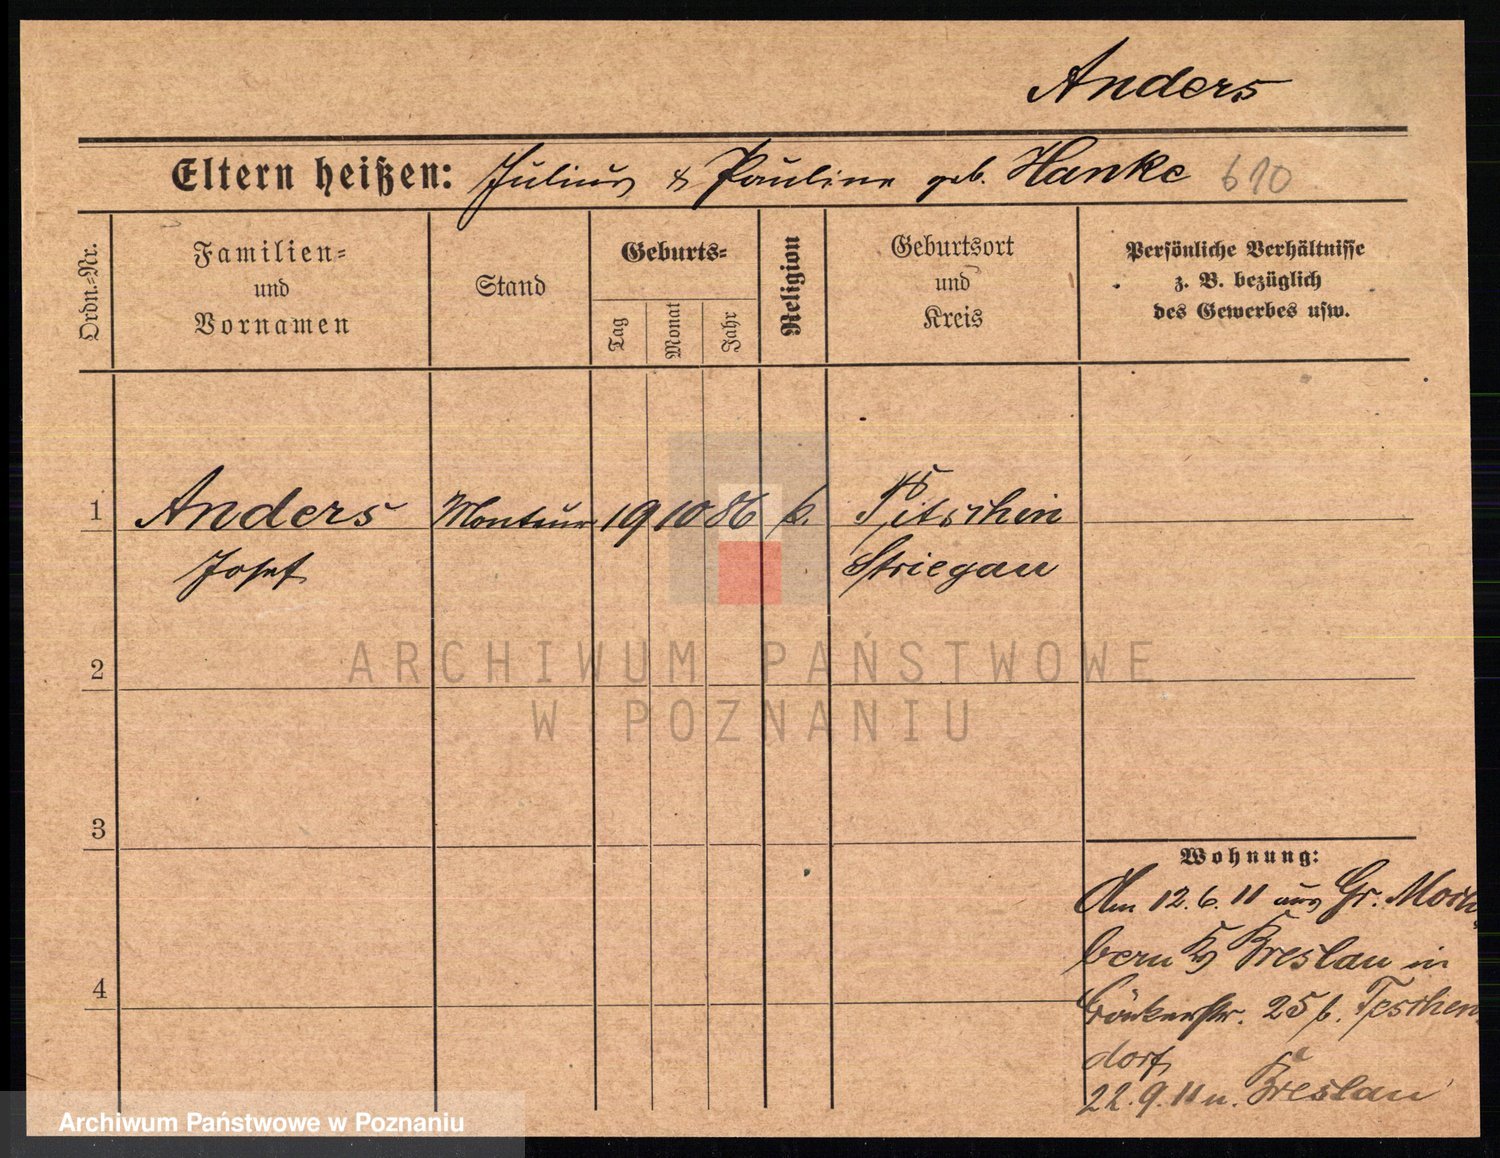 Anders
Eltern heißen: Julius & Pauline geb. Hanke 610
Ordn.=Nr.
Familien=
und
Vornamen
Stand
Geburts=
Tag
Monat
Jahr
Religion
Geburtsort
und
Kreis
Persönliche Verhältnisse
z. B. bezüglich
des Gewerbes usw.
1 Anders Monteur 19 10 86 k. Pitschin
Josef Striegau
ARCHIWUM PAŃSTWOWE
W POZNANIU
2
3
4
Wohnung:
Am 12.6.11 aus Gr. Moch
bern Breslau in
25 b. Teschen
dorf
22.9.11 n. Breslau
Archiwum Państwowe w Poznaniu